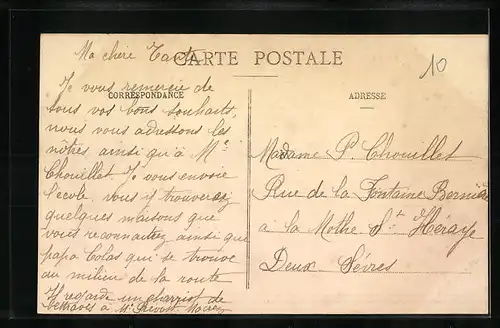 CARTE POSTALE
10
CORRESPONDANCE
Ma chère Tante
Je vous remercie de
tous vos bons souhaits,
nous vous adressons les
nôtres, ainsi qu'à Mr
Chouillet. Je vous envoie
l'école. vous y trouverez
quelques maisons que
vous reconnaîtrez ainsi que
papa Colas qui se trouve
au milieu de la route
Il regarde un charriot de
betteraves à Mr Prévost
ADRESSE
Madame P. Chouillet
Rue de la Fontaine
à la Mothe St Héraye
Deux Sèvres